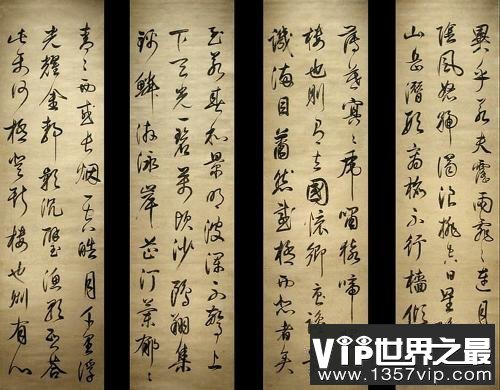 異乎若夫霪雨霏〻連月
陰風怒號濁浪排空日星
山岳潛形商旅不行檣傾
薄暮冥〻虎嘯猿啼
樓也則有去國懷鄉憂讒
譏滿目蕭然感極而悲者矣
至若春和景明波瀾不驚上
下天光一碧萬頃沙鷗翔集
錦鱗游泳岸芷汀蘭郁〻
青〻而或長烟一空皓月千里浮
光耀金靜影沉璧漁歌互答
此樂何極登斯樓也則有心
VIP世界之最
www.1357vip.com